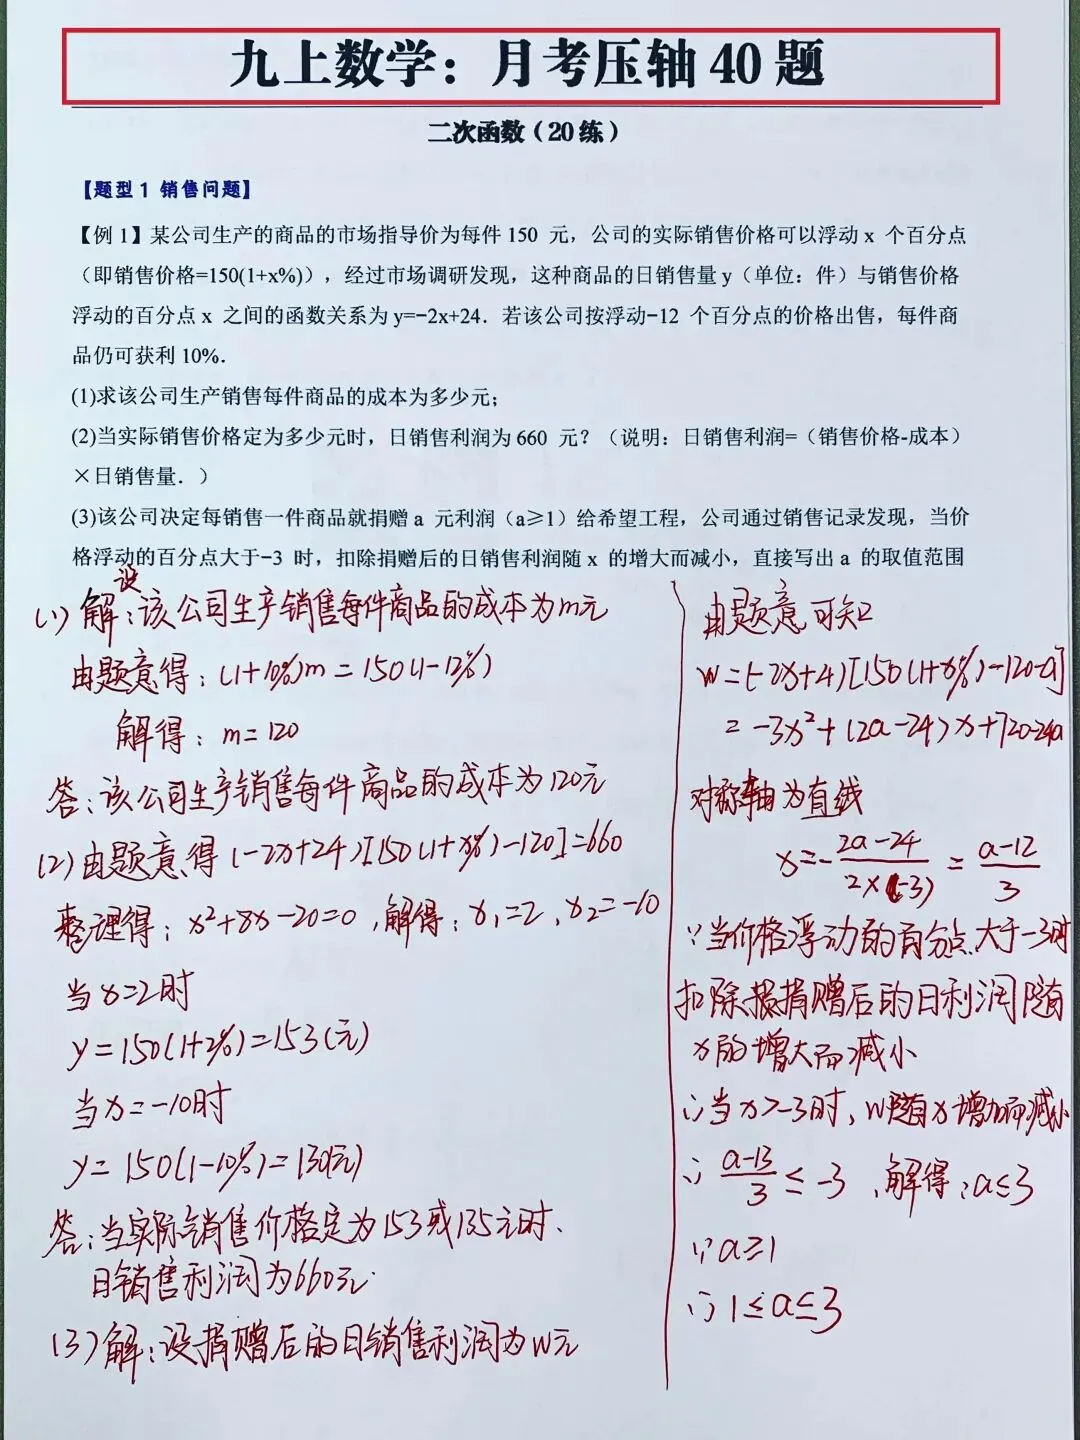 九上数学：月考压轴40题
二次函数（20练）
【题型1 销售问题】
【例1】某公司生产的商品的市场指导价为每件150 元，公司的实际销售价格可以浮动x 个百分点
（即销售价格=150(1+x%)），经过市场调研发现，这种商品的日销售量y（单位：件）与销售价格
浮动的百分点x 之间的函数关系为y=−2x+24．若该公司按浮动−12 个百分点的价格出售，每件商
品仍可获利10%．
(1)求该公司生产销售每件商品的成本为多少元；
(2)当实际销售价格定为多少元时，日销售利润为660 元？（说明：日销售利润=（销售价格-成本）
×日销售量．）
(3)该公司决定每销售一件商品就捐赠a 元利润（a≥1）给希望工程，公司通过销售记录发现，当价
格浮动的百分点大于−3 时，扣除捐赠后的日销售利润随x 的增大而减小，直接写出a 的取值范围
(1) 解：设该公司生产销售每件商品的成本为m元
由题意得：(1+10%)m = 150(1-12%)
解得：m=120
答：该公司生产销售每件商品的成本为120元
(2) 由题意得 (-2x+24)[150(1+x%)-120]=660
整理得：x²+8x-20=0，解得：x₁=2、x₂=-10
当x=2时
y=150(1+2%)=153(元)
当x=-10时
y=150(1-10%)=130(元)
答：当实际销售价格定为153或135元时、
日销售利润为660元.
(3) 解：设捐赠后的日销售利润为w元
由题意可知
w=(-2x+4)[150(1+x%)-120-a]
=-3x²+(2a-24)x+720-24a
对称轴为直线
x=-\frac{2a-24}{2×(-3)}=\frac{a-12}{3}
∵当价格浮动的百分点大于-3时
扣除捐赠后的日利润随
x的增大而减小
∴当x>-3时，w随x增加而减小
∴\frac{a-13}{3}≤-3、解得：a≤3
∵a≥1
∴1≤a≤3